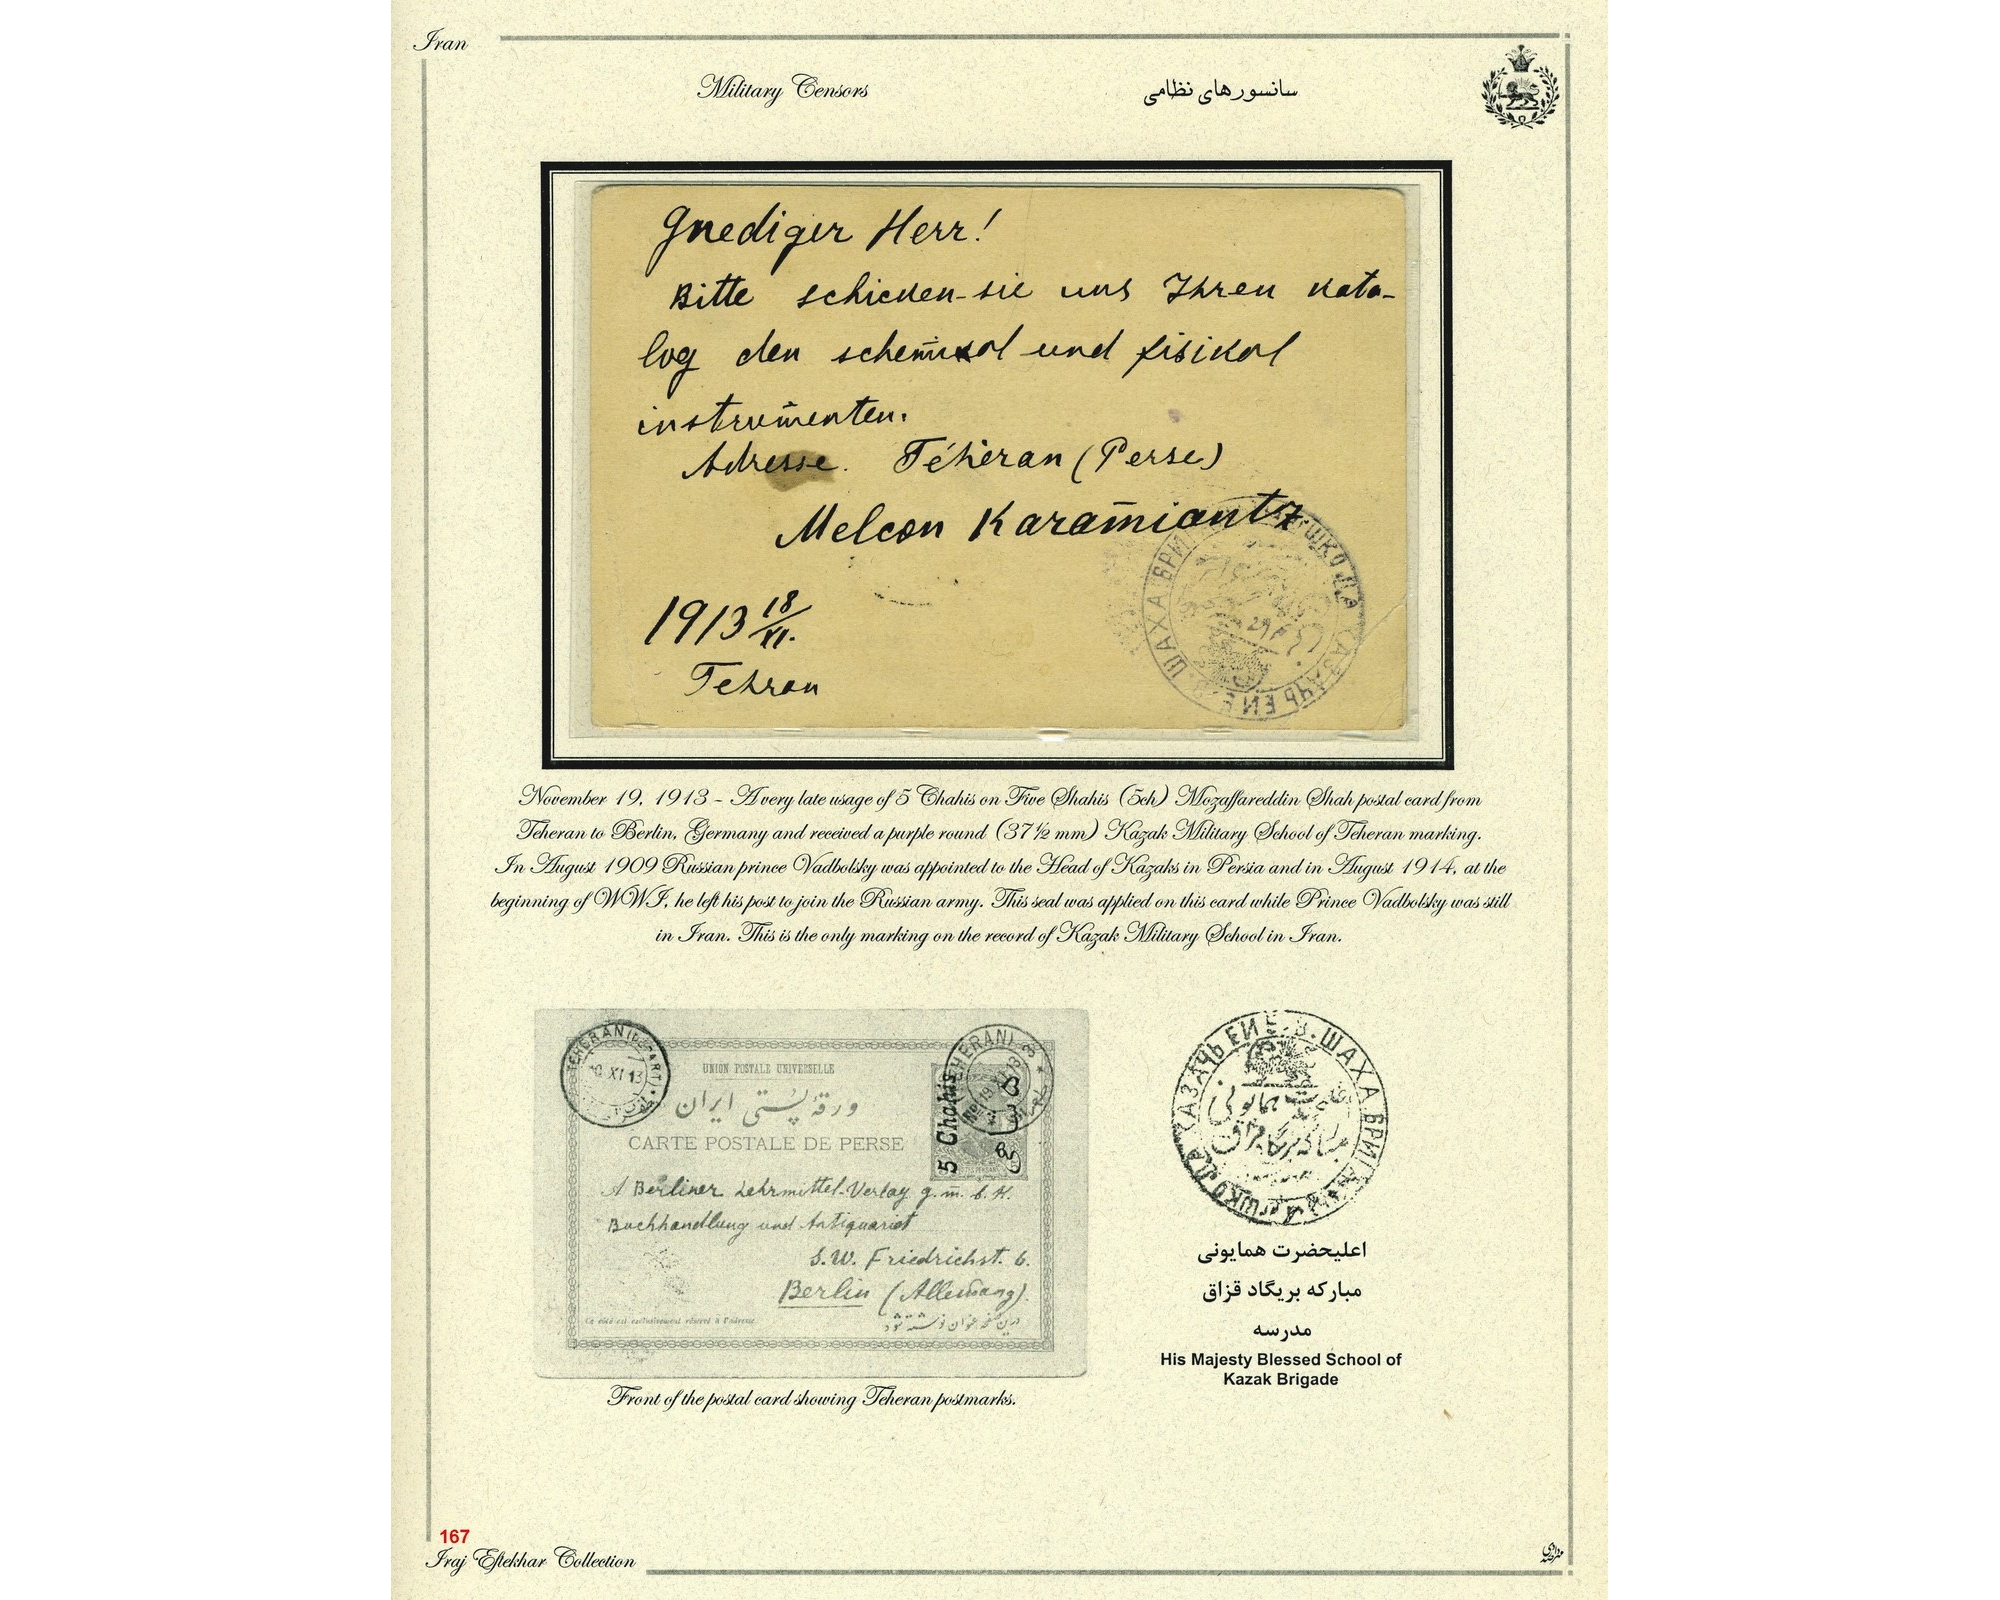 Iran
Military Censors
سانسورهای نظامی
Gnediger Herr!
Bitte schicken-sie uns Ihren kata-
log den schemikol und fisikol
instrumenten.
Adresse. Téhéran (Perse)
Melcon Karamiantz
1913 18/XI.
Tehran
November 19, 1913 - A very late usage of 5 Chahis on Five Shahis (5ch) Mozaffareddin Shah postal card from
Teheran to Berlin, Germany and received a purple round (37 ½ mm) Kazak Military School of Teheran marking.
In August 1909 Russian prince Vadbolsky was appointed to the Head of Kazaks in Persia and in August 1914, at the
beginning of WWI, he left his post to join the Russian army. This seal was applied on this card while Prince Vadbolsky was still
in Iran. This is the only marking on the record of Kazak Military School in Iran.
TEHERAN (DEPART)
XI 13
TEHERAN 3
19 XI 13
5 Chahis
UNION POSTALE UNIVERSELLE
ورقهٔ پستی ایران
CARTE POSTALE DE PERSE
A Berliner Lehrmittel-Verlag g. m. b. H.
Buchhandlung und Antiquariat
S.W. Friedrichst. 6.
Berlin (Allemang).
Ce côté est exclusivement réservé à l'adresse
درین صفحه عنوان نوشته شود
В. ШАХА БРИГ
اعلیحضرت همایونی
مبارکه بریگاد قزاق
مدرسه
His Majesty Blessed School of
Kazak Brigade
Front of the postal card showing Teheran postmarks.
167
Iraj Eftekhar Collection